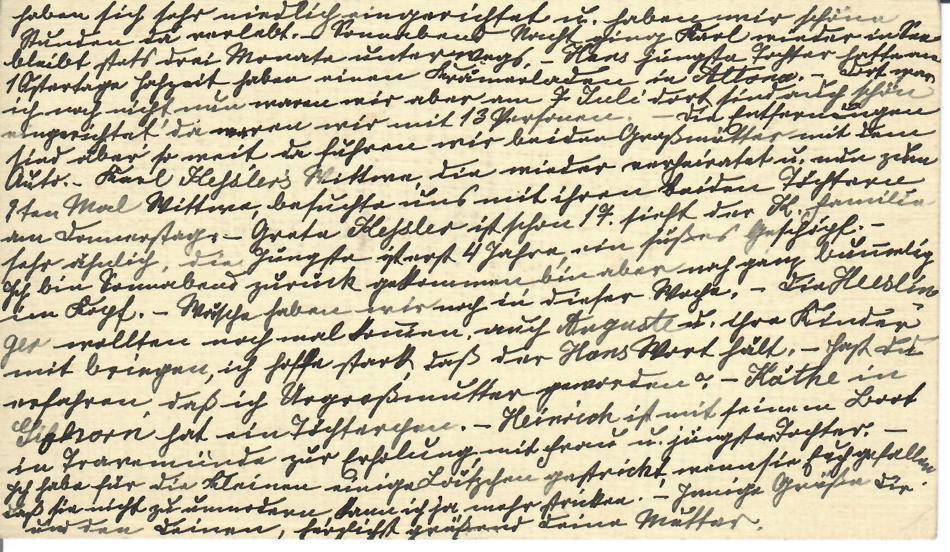 haben sich sehr niedlich eingerichtet u. haben wir schöne
Stunden da verlebt. - Sonnabend Nacht ging Karl wieder in See
bleibt stets drei Monate unterwegs. - Hans jüngste Tochter hatte am
1 Ostertage Hochzeit haben einen Krämerladen in Altona. - Dort war
ich noch nicht nun waren wir aber am 7 Juli dort, sind auch schön
eingerichtet da waren wir mit 13 Personen. - Die Entfernungen
sind aber so weit da fuhren wir beiden Großmütter mit dem
Auto. - Karl Kesslers Wittwe, die wieder verheiratet u. nun zum
2ten Mal Wittwe, besuchte uns mit ihren beiden Töchtern
am Donnerstag. - Greta Kessler ist schon 17. sieht der K. Familie
sehr ähnlich, die Jüngste ist erst 4 Jahre, ein süßes Geschöpf. -
Ich bin Sonnabend zurück gekommen bin aber noch ganz
im Kopf. - Wäsche haben wir noch in dieser Woche. - Die
wollten noch mal kommen, auch Auguste u. ihre Kinder
mit bringen, ich hoffe stark, daß der Hans Wort hält. - Hast Du
erfahren, daß ich Urgroßmutter geworden? - Käthe in
Gifhorn hat ein Töchterchen. - Heinrich ist mit seinem Boot
in Travemünde zur Erholung mit Frau u. jüngster Tochter. -
Ich habe für die Kleinen einige Lätzchen gestrickt, wenn sie Euch gefallen
daß sie nicht zu unmodern kann ich ja mehr stricken. - Innige Grüße Dir
und den Deinen, herzlichst grüßend Deine Mutter.